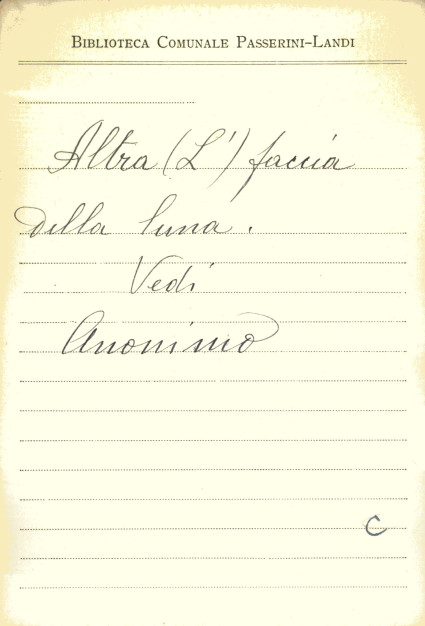 BIBLIOTECA COMUNALE PASSERINI-LANDI
Altra (L') faccia
della luna.
Vedi
Anonimo
C